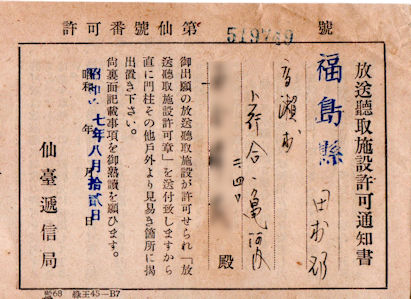 許可番號仙第 號
放送聽取施設許可通知書
福島縣 田村郡
高瀬村
下行合
殿
御出願の放送聽取施設が許可せられ「放
送聽取施設許可章」を送付致しますから
直に門柱その他戸外より見易き箇所に揭
出置き下さい。
尙裏面記載事項を御熟讀を願ひます。
昭和 七年八月拾貳日
仙臺遞信局
45—B7